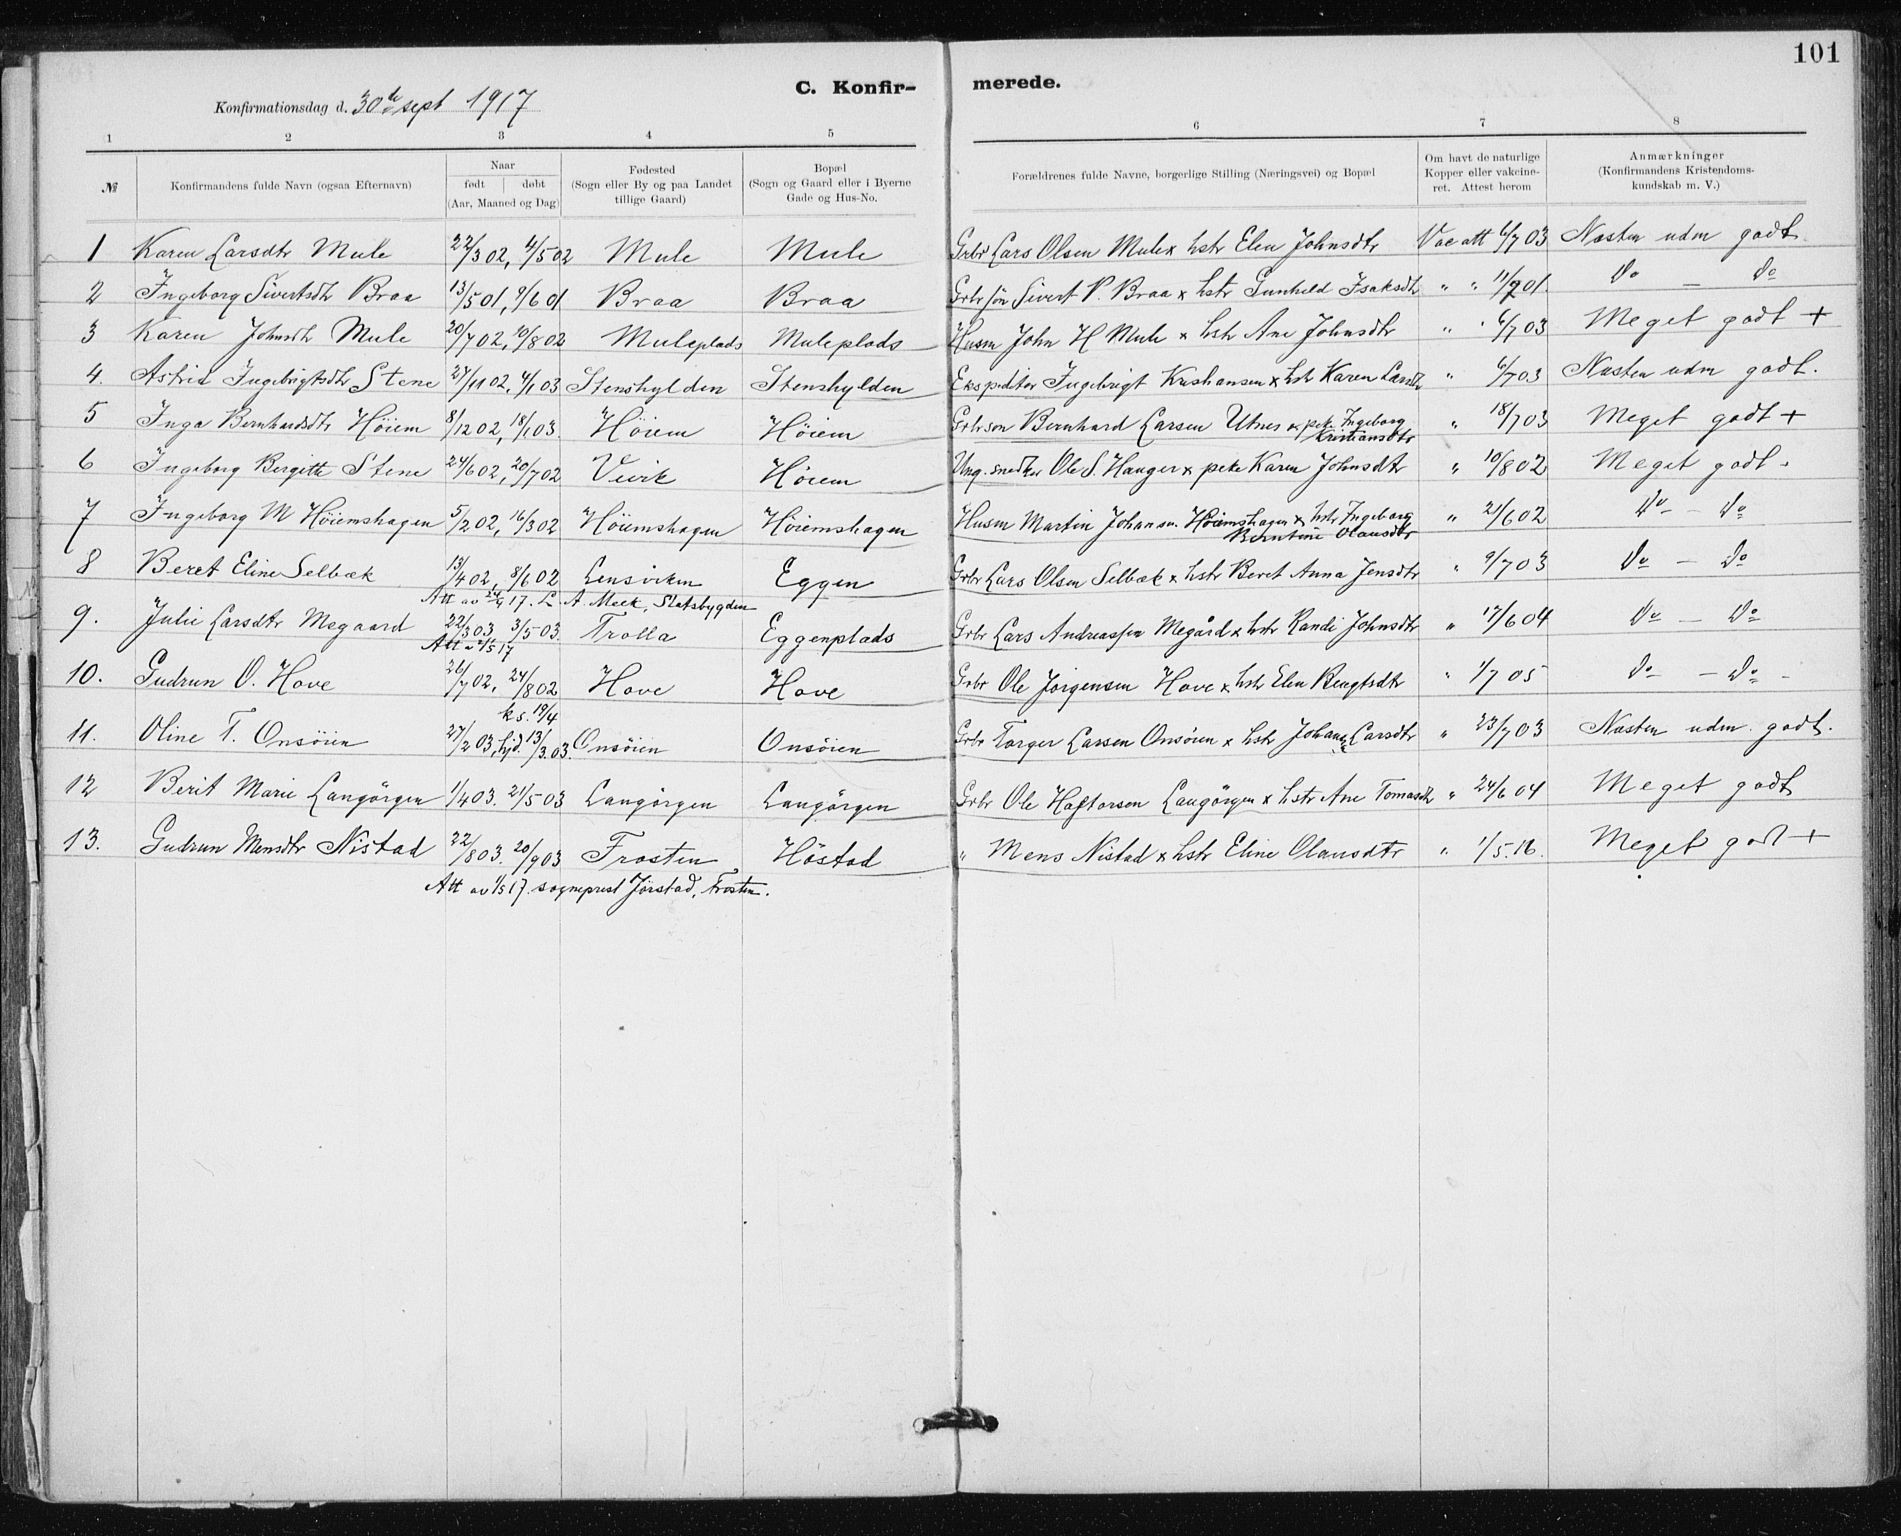 101
C. Konfir- merede.
Konfirmationsdag d. 30te sept 1917
1 2 3 4 5 6 7 8
№ Konfirmandens fulde Navn (ogsaa Efternavn) Naar født døbt (Aar, Maaned og Dag) Fødested (Sogn eller By og paa Landet tillige Gaard) Bopæl (Sogn og Gaard eller i Byerne Gade og Hus-No. Forældrenes fulde Navne, borgerlige Stilling (Næringsvei) og Bopæl Om havt de naturlige Kopper eller vakcineret. Attest herom Anmærkninger (Konfirmandens Kristendomskundskab m. V.)
1 Karen Larsdtr Mule 22/3 02, 4/5 02 Mule Mule Grbr Lars Olsen Mule x hstr Elen Johnsdtr Vac att 6/7 03 Næsten udm godt.
2 Ingeborg Sivertsdtr Braa 13/5 01, 9/6 01 Braa Braa Grbrsön Sivert P. Braa x hstr Gunhild Isaksdtr " " 11/7 01. Do — Do
3 Karen Johnsdtr Mule 20/7 02, 10/8 02 Muleplads Muleplads Husm John H Mule x hstr Ane Johnsdtr " " 6/7 03 Meget godt +
4. Astrid Ingebrigtsdtr Stene 27/11 02, 4/1 03 Stenshylden Stenshylden Ekspeditör Ingebrigt Kristiansen x hstr Karen Larsdtr " 6/7 03 Næsten udm godt.
5 Inga Bernhardsdtr Höiem 8/12 02, 18/1 03. Höiem Höiem Grbrsön Bernhard Larsen Utnes x pike Ingeborg Kristiansdtr " 18/7 03 Meget godt +
6 Ingeborg Bergitte Stene 24/6 02, 20/7 02 Vivik Höiem Ung. snedker Ole S. Hanger x pike Karen Johnsdtr " 10/8 02 Meget godt.
7 Ingeborg M Höiemshagen 5/2 02, 16/3 02 Höiemshagen Höiemshagen Husm Martin Johansen Höiemshagen x hstr Ingeborg Berntine Olausdtr " 21/6 02 Do — Do
8 Beret Eline Selbæk 13/4 02, 8/6 02 Lensviken Eggen Grbr Lars Olsen Selbæk x hstr Beret Anna Jensdtr " 9/7 03 Do — Do
Att av 24/9 17. L. A. Meek, Statsbygden
9. Julie Larsdtr Megaard 22/3 03 3/5 03. Trolla Eggenplads Grbr Lars Andreassen Megård x hstr Randi Johnsdtr " 17/6 04 Do — Do
Att 2/5 17
10. Gudrun O. Hove 26/7 02, 24/8 02 Hove Hove Grbr Ole Jörgensen Hove x hstr Elen Bengtsdtr " 1/7 05 Do — Do -
ks. 19/4
11. Oline T. Onsöien 27/2 03, hjd. 13/3. 03. Onsöien Onsöien Grbr Torger Larsen Onsöien x hstr Johanna Larsdtr " 23/7 03 Næsten udm. godt.
12 Berit Marie Langörgen 1/4 03. 21/5 03 Langörgen Langörgen Grbr Ole Haftorsen Langörgen x hstr Ane Tomasdtr " 24/6 04 Meget godt
13. Gudrun Mensdtr Nistad 22/8 03. 20/9 03 Frosten Höstad " Mens Nistad x hstr Eline Olausdtr " 1/5. 16. Meget godt +
Att av 1/5 17. sogneprest Jörstad, Frosten.